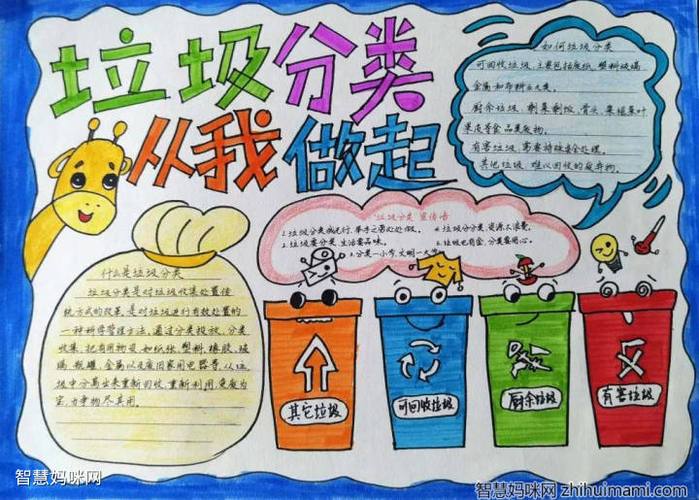 垃圾分类
从我做起
如何垃圾分类
可回收垃圾,主要包括废纸,塑料玻璃
金属和布料五大类。
厨余垃圾 剩菜剩饭,骨头,菜根菜叶
果皮等食品类废物。
有害垃圾 需要特殊安全处理。
其他垃圾 难以回收的废弃物。
垃圾分类 宣传语
1.垃圾分类我先行,举手之劳处处做。
2.垃圾要分类,生活要品味。
3.分类一小步,文明一大步
4.垃圾分分类,资源不浪费。
5.垃圾也有金,分类要用心。
什么是垃圾分类
垃圾分类是对垃圾收集处置传
统方式的改革,是对垃圾进行有效处置的
一种科学管理方法,通过分类投放,分类
收集,把有用物资,如纸张,塑料,橡胶,玻
璃,瓶罐,金属以及废旧家用电器等,从垃
圾中分离出来重新回收,重新利用,变废为
宝,力争物尽其用。
其它垃圾
可回收垃圾
厨余垃圾
有害垃圾
智慧妈咪网
智慧妈咪网 zhihuimami.com